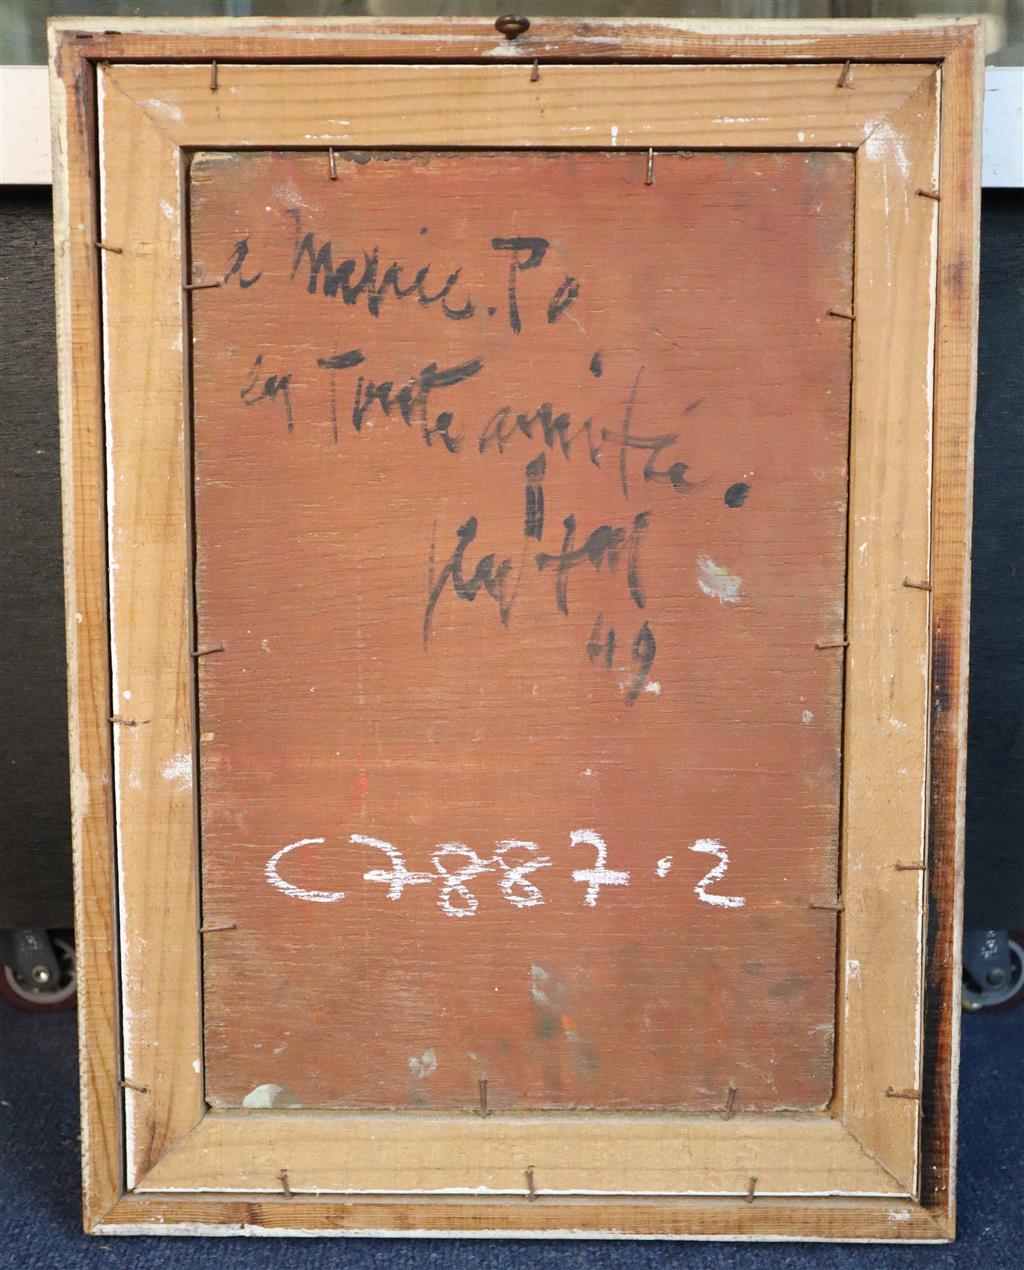 a Marie. Po
en Toute amitié.
49
C7887.2